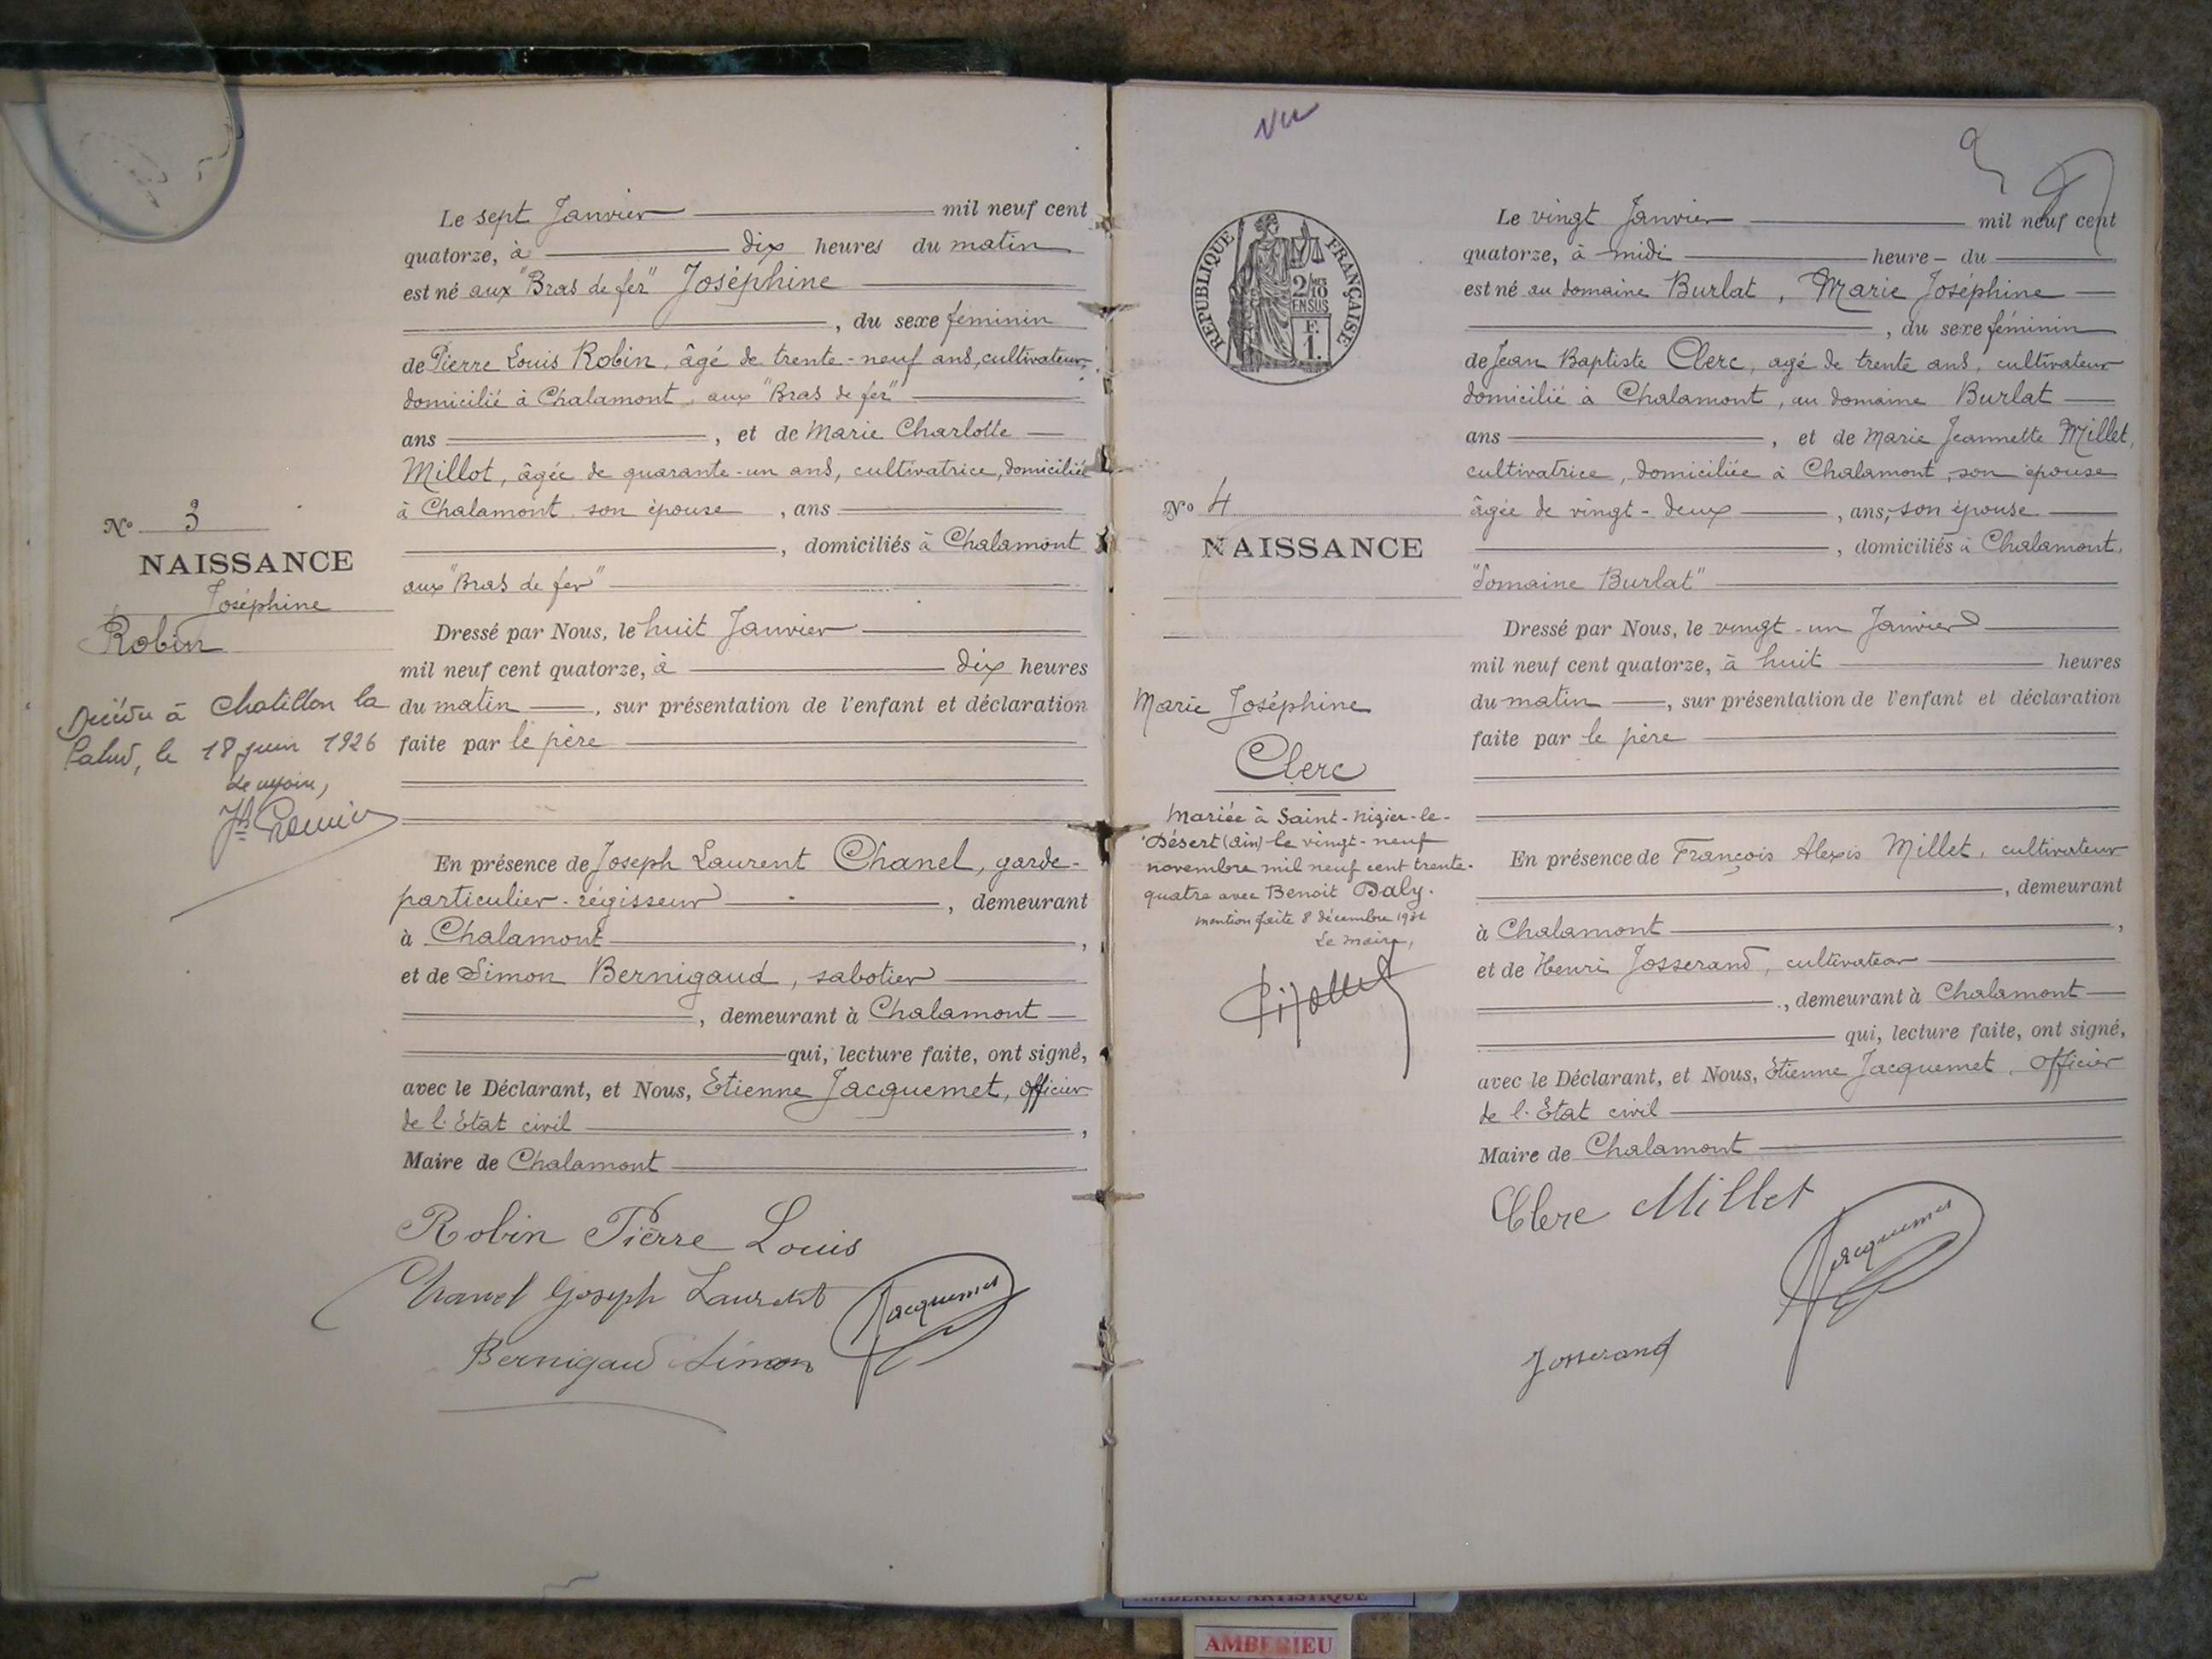 Le sept Janvier mil neuf cent
quatorze, à dix heures du matin
est né aux "Bras de fer" Joséphine
, du sexe féminin
de Pierre Louis Robin, âgé de trente-neuf ans, cultivateur,
domicilié à Chalamont, aux "Bras de fer"
ans , et de Marie Charlotte
Millot, âgée de quarante-un ans, cultivatrice, domiciliée
à Chalamont, son épouse , ans
, domiciliés à Chalamont
aux "Bras de fer"
Dressé par Nous, le huit Janvier
mil neuf cent quatorze, à dix heures
du matin , sur présentation de l'enfant et déclaration
faite par le père
En présence de Joseph Laurent Chanel, garde-
particulier-régisseur , demeurant
à Chalamont ,
et de Simon Bernigaud, sabotier
, demeurant à Chalamont
qui, lecture faite, ont signé,
avec le Déclarant, et Nous, Etienne Jacquemet, Officier
de l'Etat civil ,
Maire de Chalamont
Robin Pierre Louis
Chanel Joseph Laurent
Jacquemet
Bernigaud Simon
No 3
NAISSANCE
Joséphine
Robin
Décédée à Chatillon la
Palud, le 18 juin 1926
Vu
2
RÉPUBLIQUE FRANÇAISE
2/10
EN SUS
F.
1.
No 4
NAISSANCE
Marie Joséphine
Clerc
Mariée à Saint-Nizier-le-
Désert (Ain) le vingt-neuf
novembre mil neuf cent trente-
quatre avec Benoit Daly.
mention faite 8 décembre 1934
Le maire,
Le vingt Janvier mil neuf cent
quatorze, à midi heure - du
est né au domaine Burlat, Marie Joséphine
, du sexe féminin
de Jean Baptiste Clerc, agé de trente ans, cultivateur
domicilié à Chalamont, au domaine Burlat
ans , et de Marie Jeannette Millet,
cultivatrice, domiciliée à Chalamont, son épouse
âgée de vingt-deux , ans, son épouse
, domiciliés à Chalamont,
"domaine Burlat"
Dressé par Nous, le vingt-un Janvier
mil neuf cent quatorze, à huit heures
du matin , sur présentation de l'enfant et déclaration
faite par le père
En présence de François Alexis Millet, cultivateur
, demeurant
à Chalamont ,
et de Henri Josserand, cultivateur
, demeurant à Chalamont
qui, lecture faite, ont signé,
avec le Déclarant, et Nous, Etienne Jacquemet, Officier
de l'Etat civil
Maire de Chalamont
Clerc Millet
Jacquemet
Josserand
AMBERIEU ARTISTIQUE
AMBERIEU